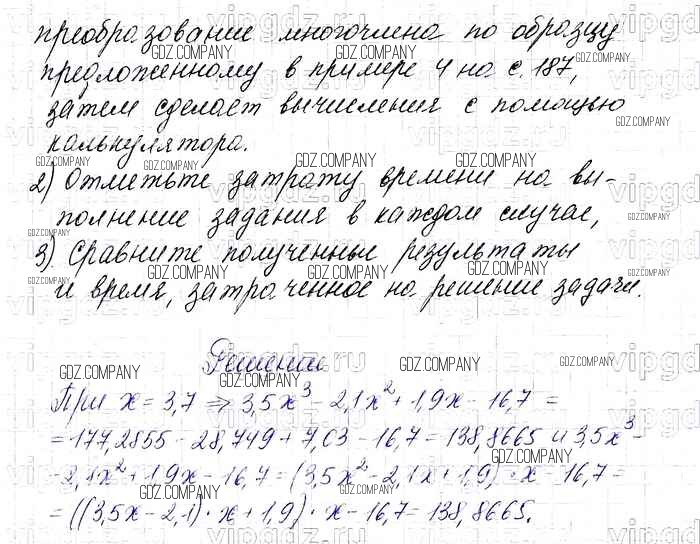 преобразование многочлена по образцу
предложенному в примере 4 на с. 187,
затем сделает вычисления с помощью
калькулятора.
2) Отметьте затрату времени на вы-
полнение задания в каждом случае,
3) Сравните полученные результаты
и время, затраченное на решение задачи.
Решение
При x = 3,7 ⇒ 3,5x³ - 2,1x² + 1,9x - 16,7 =
= 177,2855 - 28,749 + 7,03 - 16,7 = 138,8665 и 3,5x³ -
- 2,1x² + 1,9x - 16,7 = (3,5x² - 2,1x + 1,9) · x - 16,7 =
= ((3,5x - 2,1) · x + 1,9) · x - 16,7 = 138,8665.